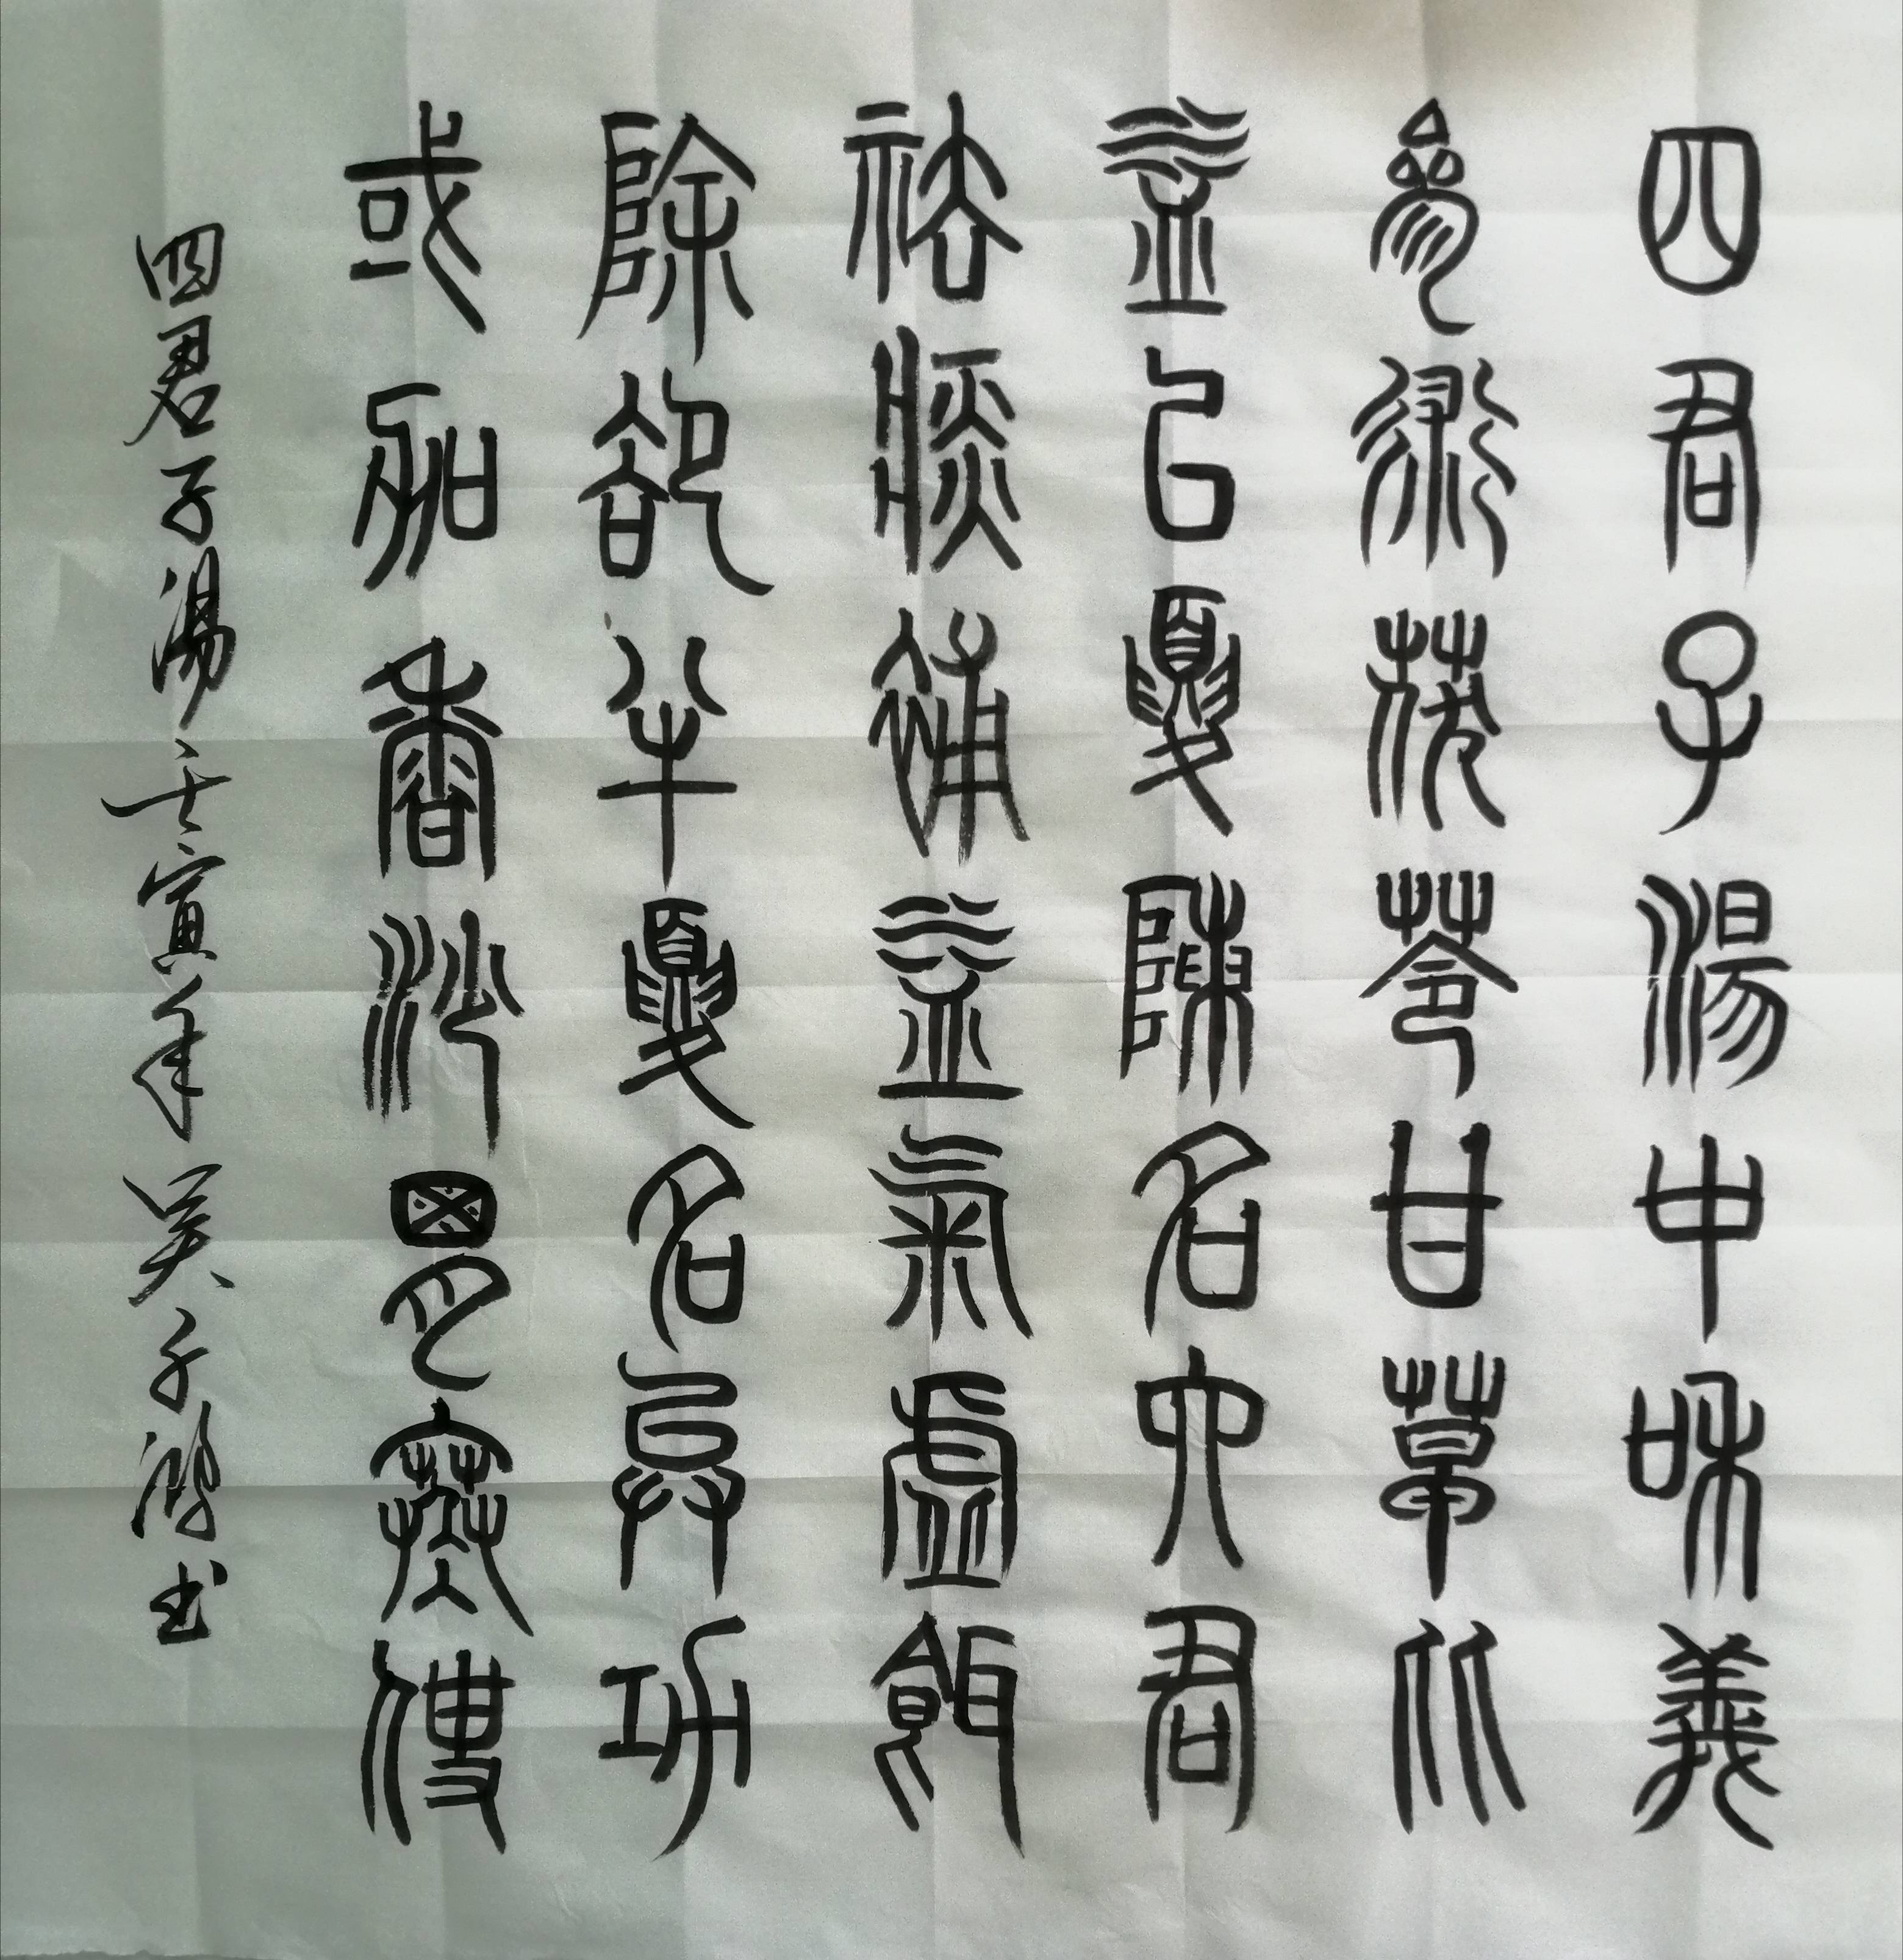 四君子湯中和義
參術茯苓甘草比
益以夏陳名六君
祛痰補益氣虛餌
除卻半夏名異功
或加香沙胃寒使
四君子湯壬寅年吴子鸿书